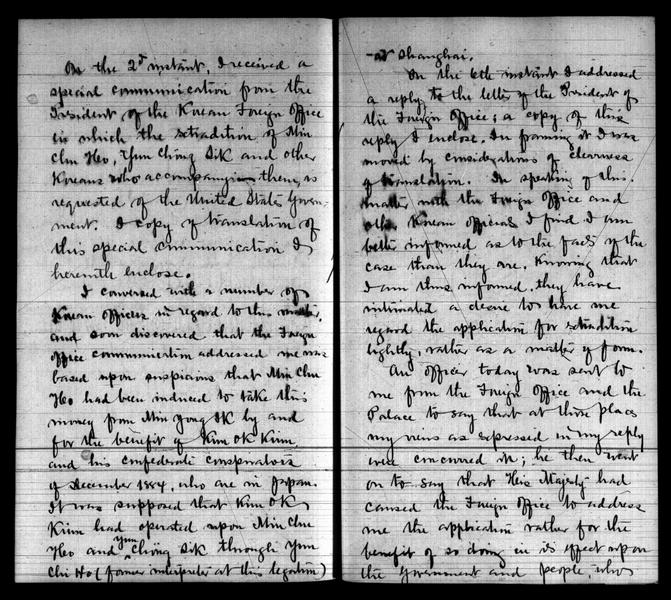 On the 2d instant, I received a
special communication from the
President of the Korean Foreign Office
in which the extradition of Min
Chu Ho, Yun Chöng Sik and other
Koreans who accompanying them, is
requested of the United States Govern-
ment. A copy of translation of
this special communication I
herewith enclose.
I conversed with a number of
Korean officers in regard to this matter,
and soon discovered that the Foreign
Office communication addressed me was
based upon suspicions that Min Chu
Ho had been induced to take this
money from Min Yong Ik by and
for the benefit of Kim Ok Kiun
and his confederate conspirators
of December 1884, who are in Japan.
It was supposed that Kim Ok
Kiun had operated upon Min Chu
Ho and Yun Chöng Sik through Yun
Chi Ho (former interpreter at this legation)
at Shanghai.
On the 6th instant I addressed
a reply to the letter of the President of
the Foreign Office; a copy of this
reply I enclose. In framing it I was
moved by considerations of clearness
of translation. In speaking of this
matter with the Foreign Office and
other Korean officials I find I am
better informed as to the facts of the
case than they are. Knowing that
I am thus informed, they have
intimated a desire to have me
regard the application for extradition
lightly, rather as a matter of form.
An officer today was sent to
me from the Foreign Office and the
Palace to say that at those places
my views as expressed in my reply
were concurred in; he then went
on to say that His Majesty had
caused the Foreign Office to address
me the application rather for the
benefit of so doing in its effect upon
the Government and people, who